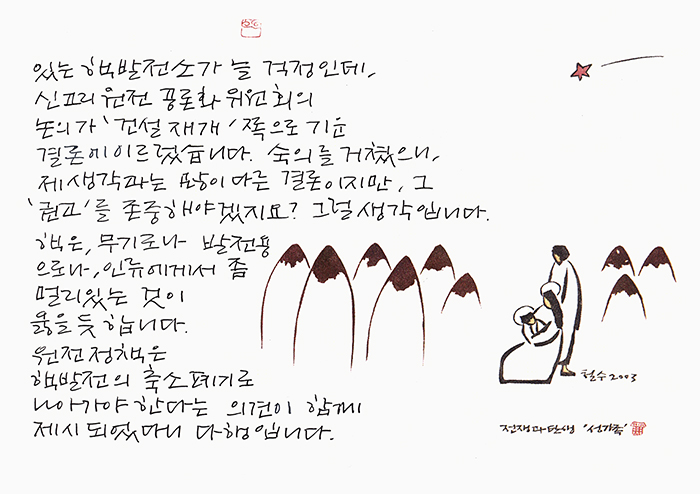 있는 핵발전소가 늘 걱정인데,
신고리 원전 공론화 위원회의
논의가 '건설 재개' 쪽으로 기운
결론에 이르렀습니다. 숙의를 거쳤으니,
제 생각과는 많이 다른 결론이지만, 그
'권고'를 존중해야겠지요? 그럴 생각입니다.
핵은, 무기로나 발전용
으로나, 인류에게서 좀
멀리있는 것이
옳을 듯 합니다.
원전정책은
핵발전의 축소 폐기로
나아가야 한다는 의견이 함께
제시 되었다니 다행입니다.
철수 2003
전쟁과 탄생 '성가족'